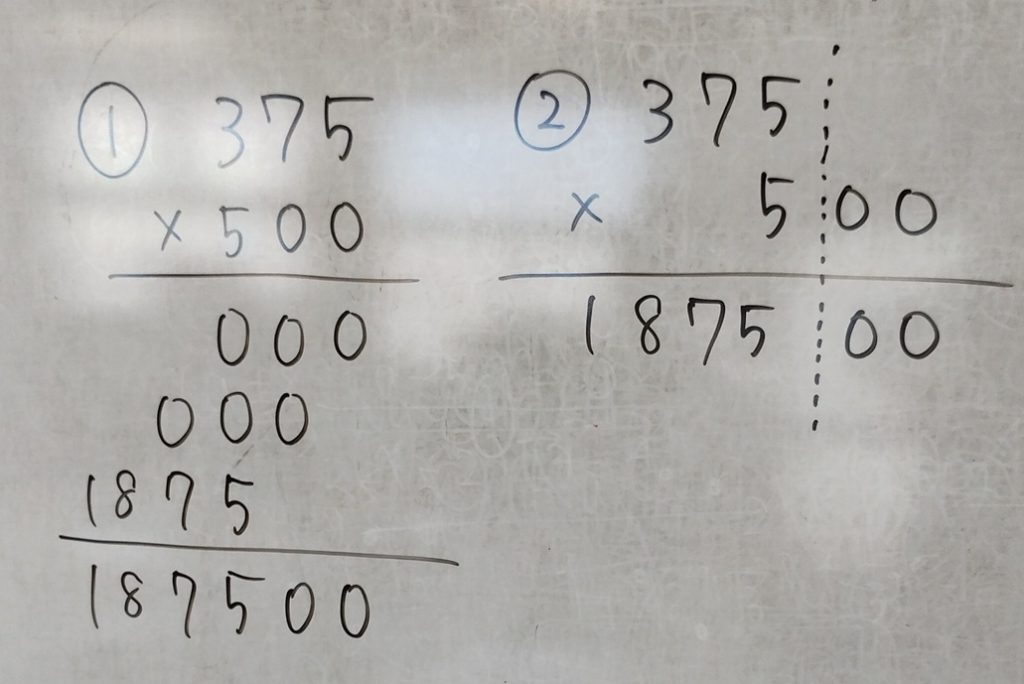 ① 375
× 500
000
000
1875
187500
② 375
× 500
187500